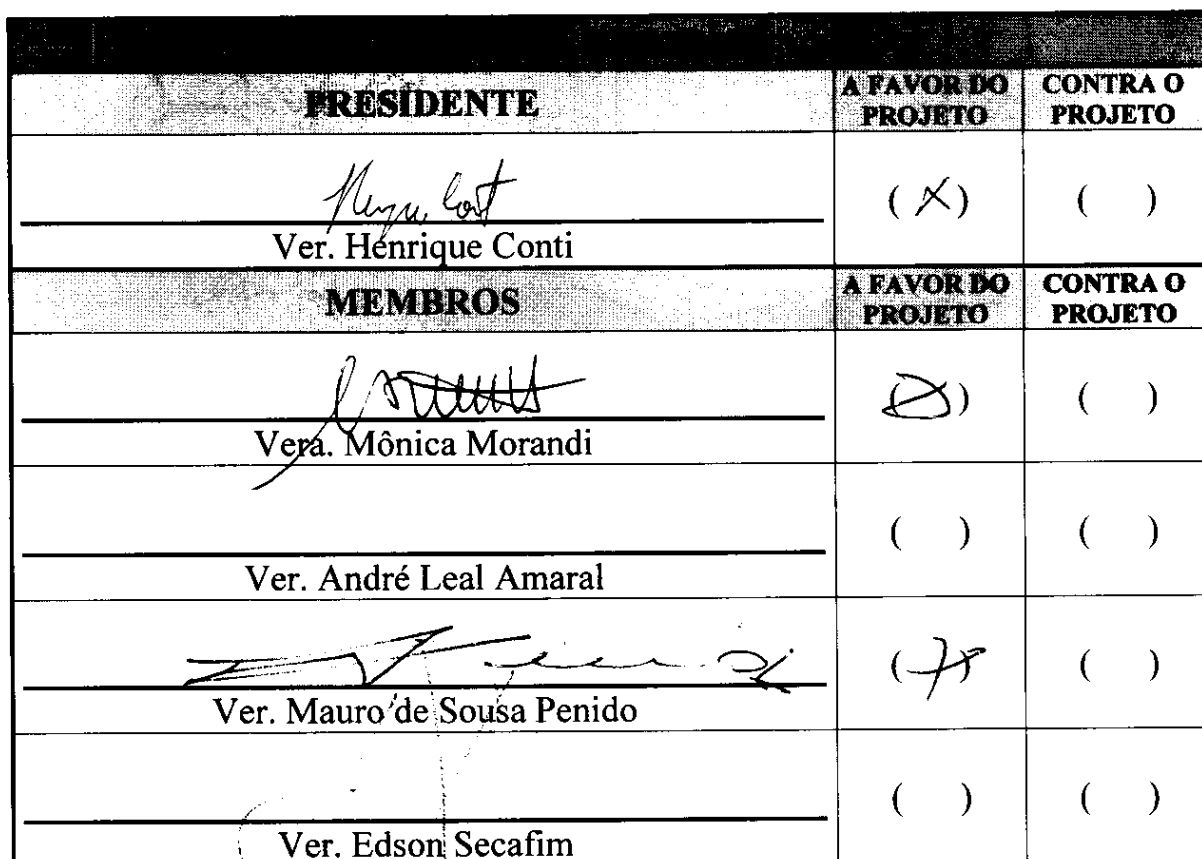 PRESIDENTE
A FAVOR DO PROJETO
CONTRA O PROJETO
( X )
( )
Ver. Henrique Conti
MEMBROS
A FAVOR DO PROJETO
CONTRA O PROJETO
( X )
( )
Vera. Mônica Morandi
( )
( )
Ver. André Leal Amaral
( X )
( )
Ver. Mauro de Sousa Penido
( )
( )
Ver. Edson Secafim